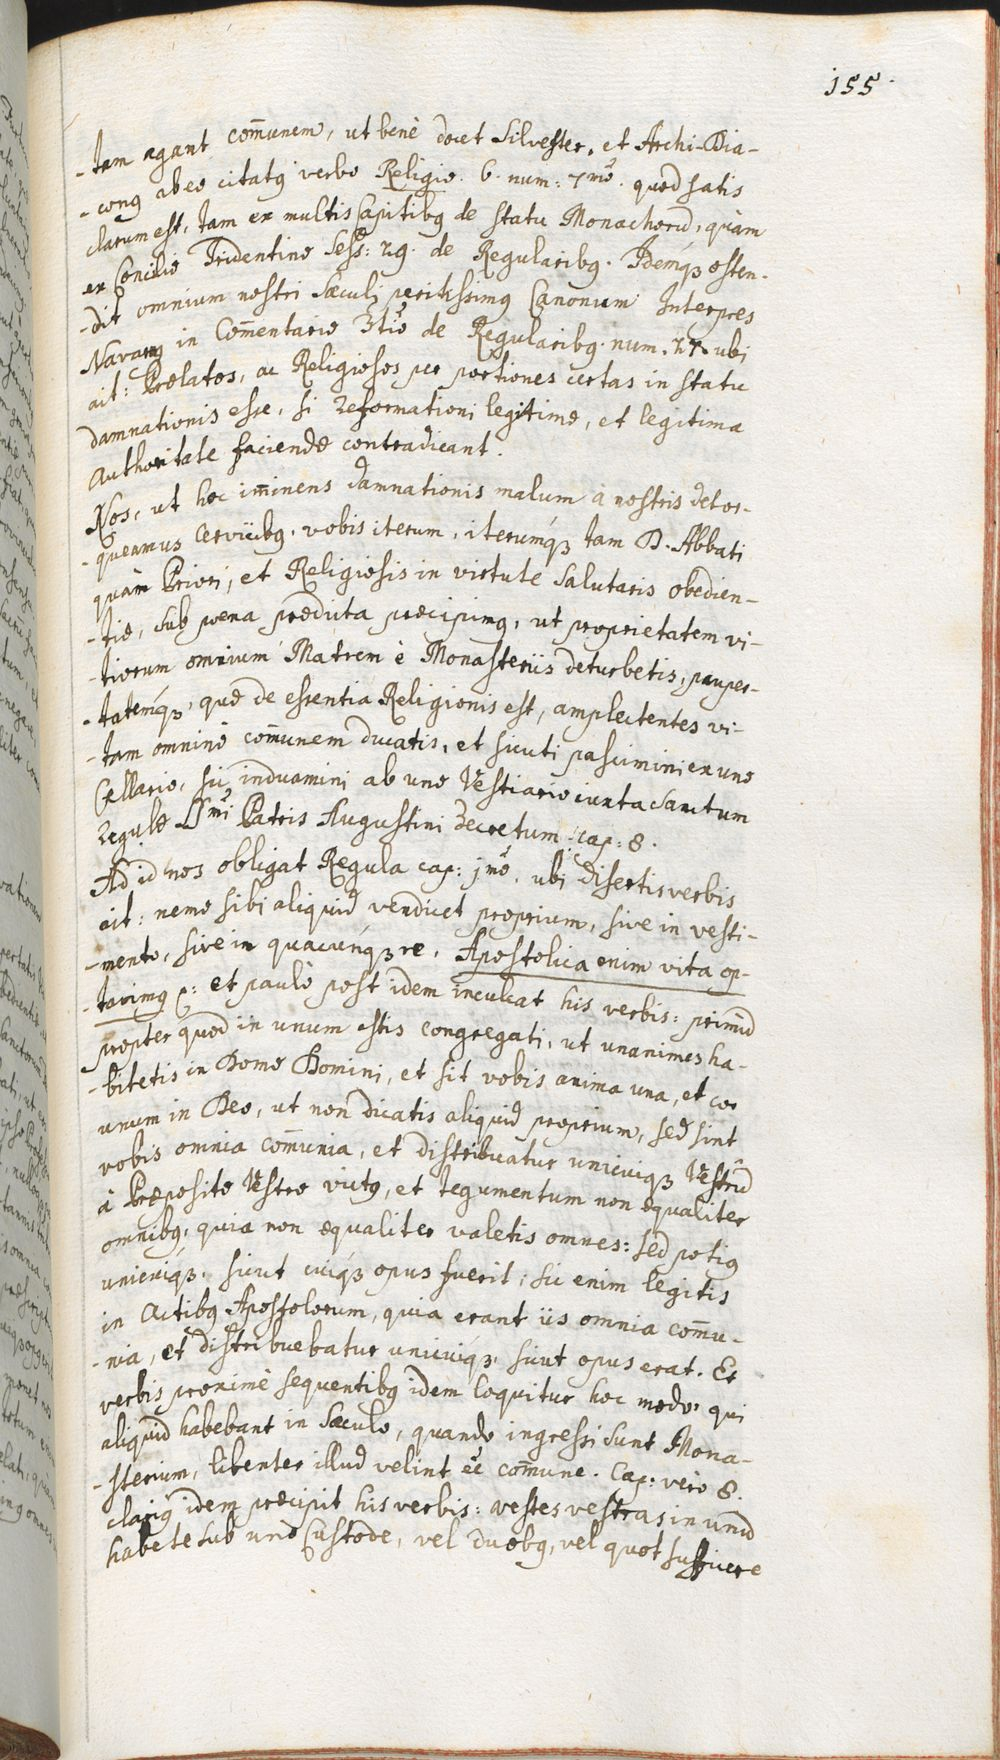 155.
-tam agant com̄unem, ut benè docet Silvester, et Archi-Dia-
-conꝯ ab eo citatꝯ verbo Religio. 6. num: 7mo. quod satis
clarum est, tam ex multis Capitibꝯ de statu Monachorū, quàm
ex Concilio Tridentino Sess: 25. de Regularibꝯ. Idemqꝫ osten-
-dit omnium nostri Sæculi peritissimꝯ Canonum Interpres
Navarrꝯ in Com̄entario 3tio de Regularibꝯ. num. 27. ubi
ait: Prælatos, ac Religiosos per portiones certas in statu
damnationis esse, si reformationi legitimę, et legitima
Authoritate faciendę contradicant.
Nos, ut hoc im̄inens damnationis malum à nostris detor-
-queamus Cervicibꝯ, vobis iterum, iterumq́ꝫ tam D. Abbati
quàm Priori, et Religiosis in virtute salutaris obedien-
-tię, sub pœna prædicta præcipimꝯ, ut proprietatem vi-
-tiorum omnium Matrem è Monasteriis deturbetis, pauper-
-tatemq́ꝫ, quę de essentia Religionis est, amplectentes vi-
-tam omninò com̄unem ducatis, et sicuti pascimini ex uno
Cellario, sic induamini ab uno Vestiario iuxta sanctum
Regulę SSmi Patris Augustini Decretum cap: 8.
Ad id nos obligat Regula cap: jmo. ubi disertis verbis
ait: nemo sibi aliquid vendicet proprium, sive in vesti-
-mento, sive in quacunq́ꝫ re, Apostolica enim vita op-
-tarimꝯ &: et paulò post idem inculcat his verbis: primū
propter quod in unum estis congregati, ut unanimes ha-
-bitetis in Domo Domini, et sit vobis anima una, et cor
unum in Deo, ut non dicatis aliquid proprium, sed sint
vobis omnia com̄unia, et distribuatur unicuiqꝫ Vestrū
à Præposito Vestro victꝯ, et tegumentum non ęqualiter
omnibꝯ, quia non ęqualiter valetis omnes: sed potiꝯ
unicuiqꝫ, sicut cuiqꝫ opus fuerit; sic enim legitis
in Actibꝯ Apostolorum, quia erant iis omnia com̄u-
-nia, et distribuebatur unicuiqꝫ, sicut opus erat. Et
verbis proximè sequentibꝯ idem loquitur hoc modo: qui
aliquid habebant in Sæculo, quando ingressi sunt Mona-
-sterium, libenter illud velint eē com̄une. Cap: verò 8.
clariꝯ idem præcipit his verbis: vestes vestras in unū
habete sub uno Custode, vel duobꝯ, vel quot sufficere